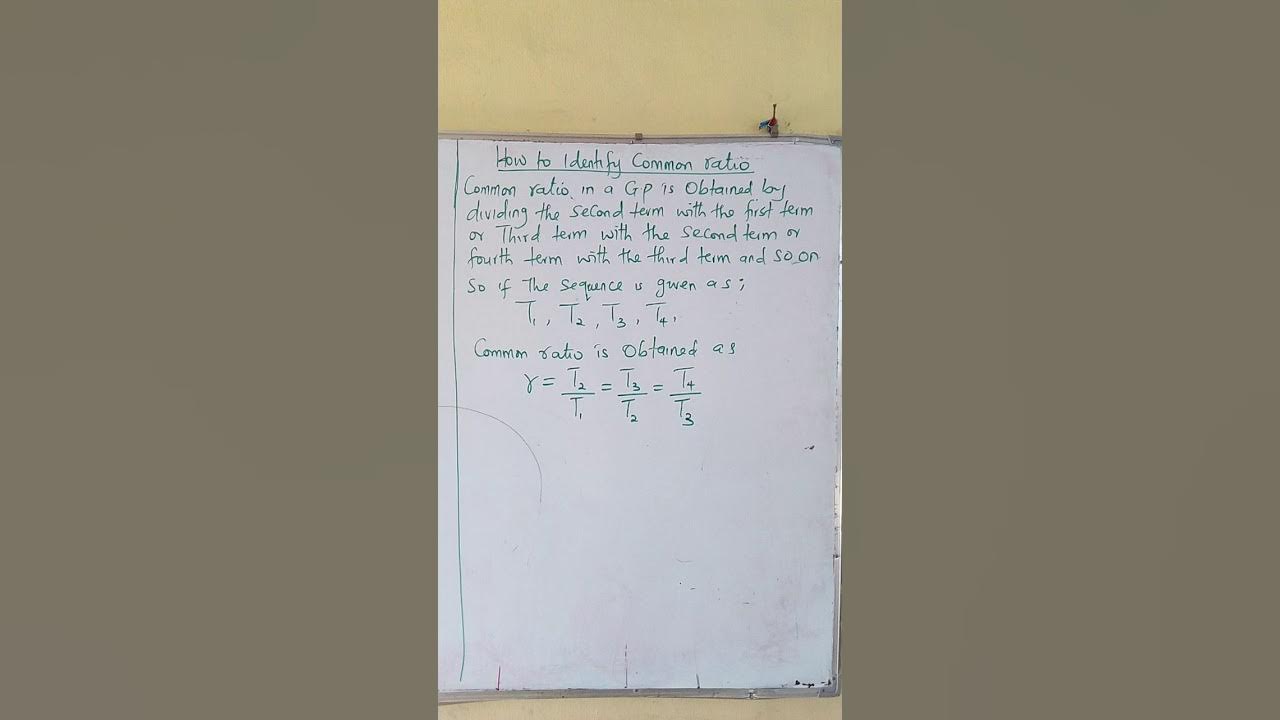 How to Identify Common ratio
Common ratio in a GP is Obtained by
dividing the second term with the first term
or Third term with the second term or
fourth term with the third term and so on
So if The sequence is given as;
T₁, T₂, T₃, T₄,
Common ratio is Obtained as
r = T₂/T₁ = T₃/T₂ = T₄/T₃